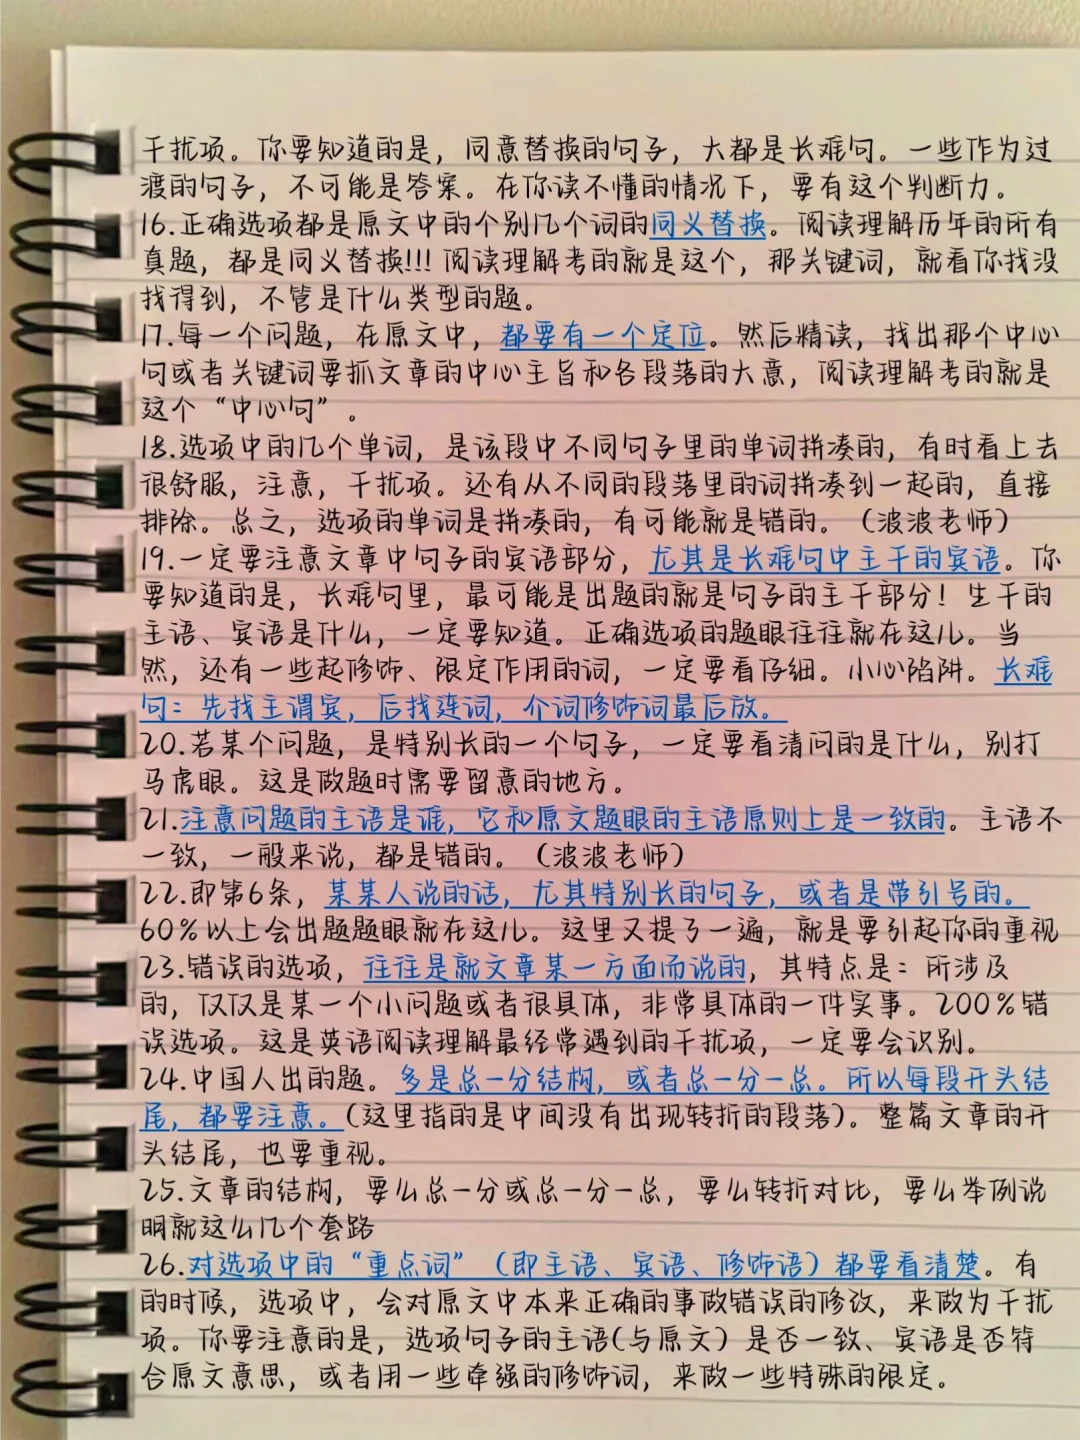 干扰项。你要知道的是，同意替换的句子，大都是长难句。一些作为过
渡的句子，不可能是答案。在你读不懂的情况下，要有这个判断力。
16.正确选项都是原文中的个别几个词的同义替换。阅读理解历年的所有
真题，都是同义替换!!!阅读理解考的就是这个，那关键词，就看你找没
找得到，不管是什么类型的题。
17.每一个问题，在原文中，都要有一个定位。然后精读，找出那个中心
句或者关键词要抓文章的中心主旨和各段落的大意，阅读理解考的就是
这个“中心句”。
18.选项中的几个单词，是该段中不同句子里的单词拼凑的，有时看上去
很舒服，注意，干扰项。还有从不同的段落里的词拼凑到一起的，直接
排除。总之，选项的单词是拼凑的，有可能就是错的。（波波老师）
19.一定要注意文章中句子的宾语部分，尤其是长难句中主干的宾语。你
要知道的是，长难句里，最可能是出题的就是句子的主干部分！生干的
主语、宾语是什么，一定要知道。正确选项的题眼往往就在这儿。当
然，还有一些起修饰、限定作用的词，一定要看仔细。小心陷阱。长难
句：先找主谓宾，后找连词，介词修饰词最后放。
20.若某个问题，是特别长的一个句子，一定要看清问的是什么，别打
马虎眼。这是做题时需要留意的地方。
21.注意问题的主语是谁，它和原文题眼的主语原则上是一致的。主语不
一致，一般来说，都是错的。（波波老师）
22.即第6条，某某人说的话，尤其特别长的句子，或者是带引号的。
60%以上会出题题眼就在这儿。这里又提了一遍，就是要引起你的重视
23.错误的选项，往往是就文章某一方面而说的，其特点是：所涉及
的，仅仅是某一个小问题或者很具体，非常具体的一件实事。200%错
误选项。这是英语阅读理解最经常遇到的干扰项，一定要会识别。
24.中国人出的题。多是总一分结构，或者总一分一总。所以每段开头结
尾，都要注意。(这里指的是中间没有出现转折的段落)。整篇文章的开
头结尾，也要重视。
25.文章的结构，要么总一分或总一分一总，要么转折对比，要么举例说
明就这么几个套路
26.对选项中的“重点词”（即主语、宾语、修饰语）都要看清楚。有
的时候，选项中，会对原文中本来正确的事做错误的修改，来做为干扰
项。你要注意的是，选项句子的主语(与原文）是否一致、宾语是否符
合原文意思，或者用一些牵强的修饰词，来做一些特殊的限定。